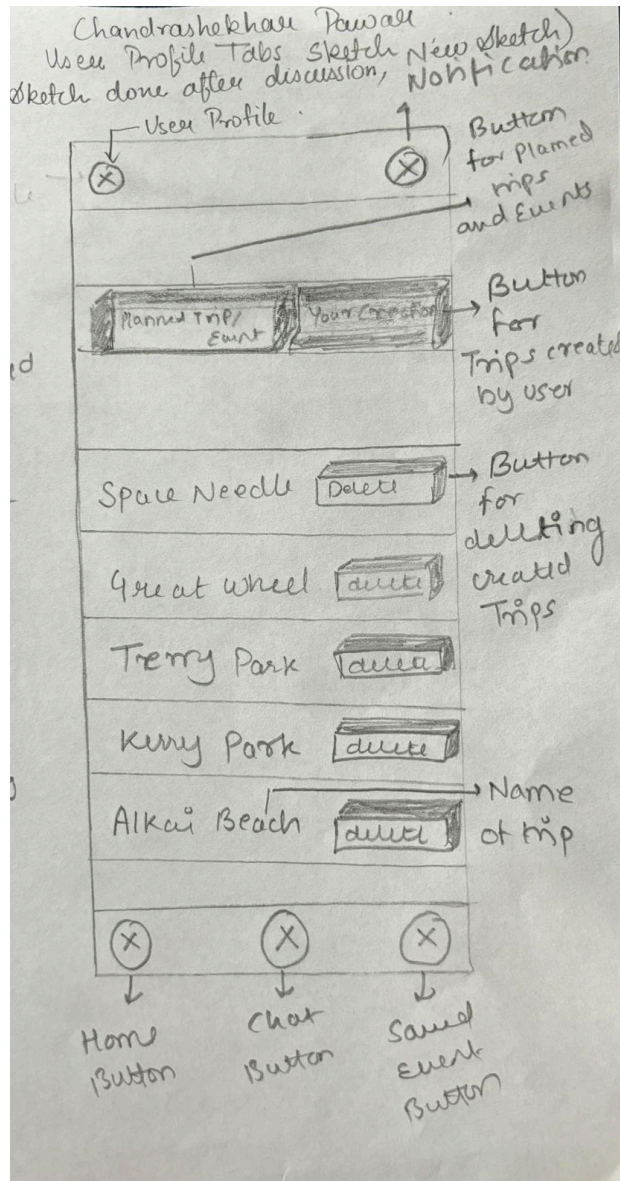 Chandrashekhar Pawar
User Profile Tabs Sketch New Sketch)
Sketch done after discussion,
Notification
User Profile.
Button
for Planned
trips
and Events
Planned Trip/
Event
Your Creation
Button
for
Trips created
by user
Space Needle
Delete
Button
for
deleting
created
Trips
Great wheel
delete
Terry Park
delete
Kerry Park
delete
Alkai Beach
delete
Name
of trip
Home
Button
Chat
Button
Saved
Event
Button